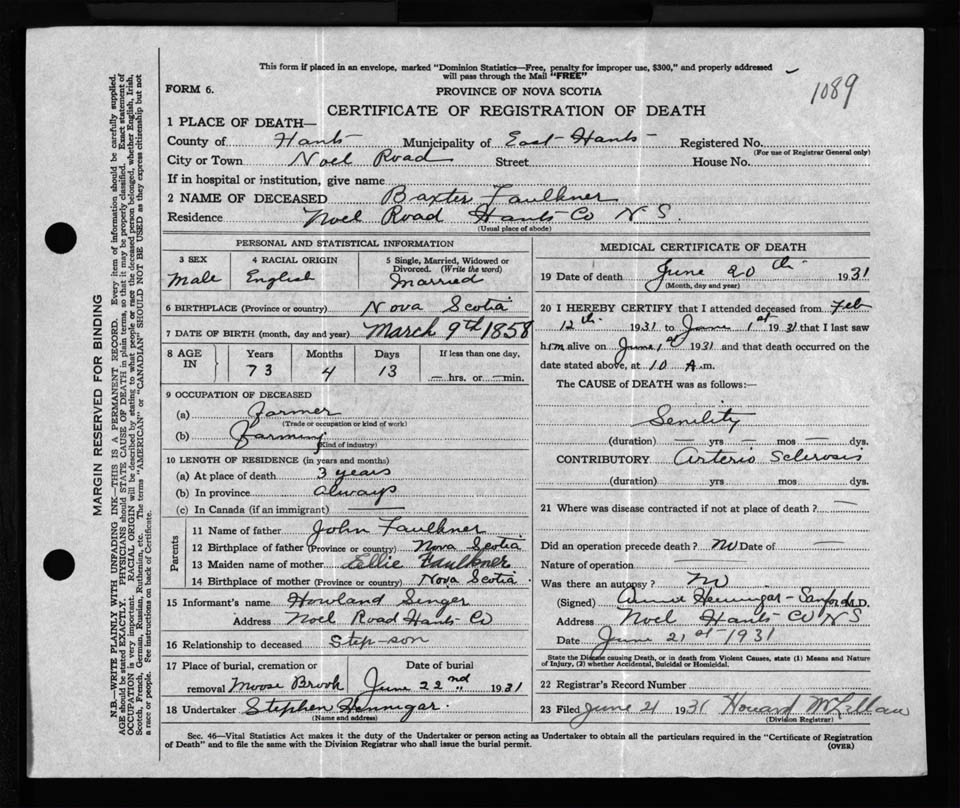 This form if placed in an envelope, marked "Dominion Statistics—Free, penalty for improper use, $300," and properly addressed
will pass through the Mail "FREE"
1089
FORM 6.
PROVINCE OF NOVA SCOTIA
CERTIFICATE OF REGISTRATION OF DEATH
1 PLACE OF DEATH—
County of Hants Municipality of East Hants Registered No.
(For use of Registrar General only)
City or Town Noel Road Street House No.
If in hospital or institution, give name
2 NAME OF DECEASED Baxter Faulkner
Residence Noel Road Hants Co N S.
(Usual place of abode)
PERSONAL AND STATISTICAL INFORMATION
3 SEX 4 RACIAL ORIGIN 5 Single, Married, Widowed or
Divorced. (Write the word)
Male English Married
6 BIRTHPLACE (Province or country) Nova Scotia
7 DATE OF BIRTH (month, day and year) March 9th 1858
8 AGE IN Years Months Days If less than one day,
73 4 13 — hrs. or — min.
9 OCCUPATION OF DECEASED
(a) Farmer
(Trade or occupation or kind of work)
(b) Farming
(Kind of industry)
10 LENGTH OF RESIDENCE (in years and months)
(a) At place of death 3 years
(b) In province always
(c) In Canada (if an immigrant) —
Parents
11 Name of father John Faulkner
12 Birthplace of father (Province or country) Nova Scotia
13 Maiden name of mother Ellie Faulkner
14 Birthplace of mother (Province or country) Nova Scotia
15 Informant's name Howland Singer
Address Noel Road Hants Co
16 Relationship to deceased Step-son
17 Place of burial, cremation or Date of burial
removal Moose Brook June 22nd 1931
18 Undertaker Stephen Hennigar
(Name and address)
MEDICAL CERTIFICATE OF DEATH
19 Date of death June 20th 1931
(Month, day and year)
20 I HEREBY CERTIFY that I attended deceased from Feb
12th 1931 to June 1st 1931 that I last saw
him alive on June 1st 1931 and that death occurred on the
date stated above, at 10 A.m.
The CAUSE of DEATH was as follows:—
Senility
(duration) — yrs — mos — dys.
CONTRIBUTORY Arterio Sclerosis
(duration) yrs mos dys.
21 Where was disease contracted if not at place of death? —
Did an operation precede death? no Date of —
Nature of operation —
Was there an autopsy? no
(Signed) Annie Hennigar-Sanford M.D.
Address Noel Hants Co N S
Date June 21st 1931
State the Disease causing Death, or in death from Violent Causes, state (1) Means and Nature
of Injury, (2) whether Accidental, Suicidal or Homicidal.
22 Registrar's Record Number
23 Filed June 21 1931 Howard McLellan
(Division Registrar)
Sec. 46—Vital Statistics Act makes it the duty of the Undertaker or person acting as Undertaker to obtain all the particulars required in the "Certificate of Registration
of Death" and to file the same with the Division Registrar who shall issue the burial permit.
(OVER)
MARGIN RESERVED FOR BINDING
N.B.—WRITE PLAINLY WITH UNFADING INK—THIS IS A PERMANENT RECORD. Every item of information should be carefully supplied.
AGE should be stated EXACTLY. PHYSICIANS should STATE CAUSE OF DEATH in plain terms, so that it may be properly classified. Exact statement of
OCCUPATION is very important. RACIAL ORIGIN will be described by stating to what people or race the deceased person belonged, whether English, Irish,
Scotch, French, German, Russian, Ruthenian, etc. The terms "AMERICAN" or "CANADIAN" SHOULD NOT BE USED as they express citizenship but not
a race or people. See instructions on back of Certificate.